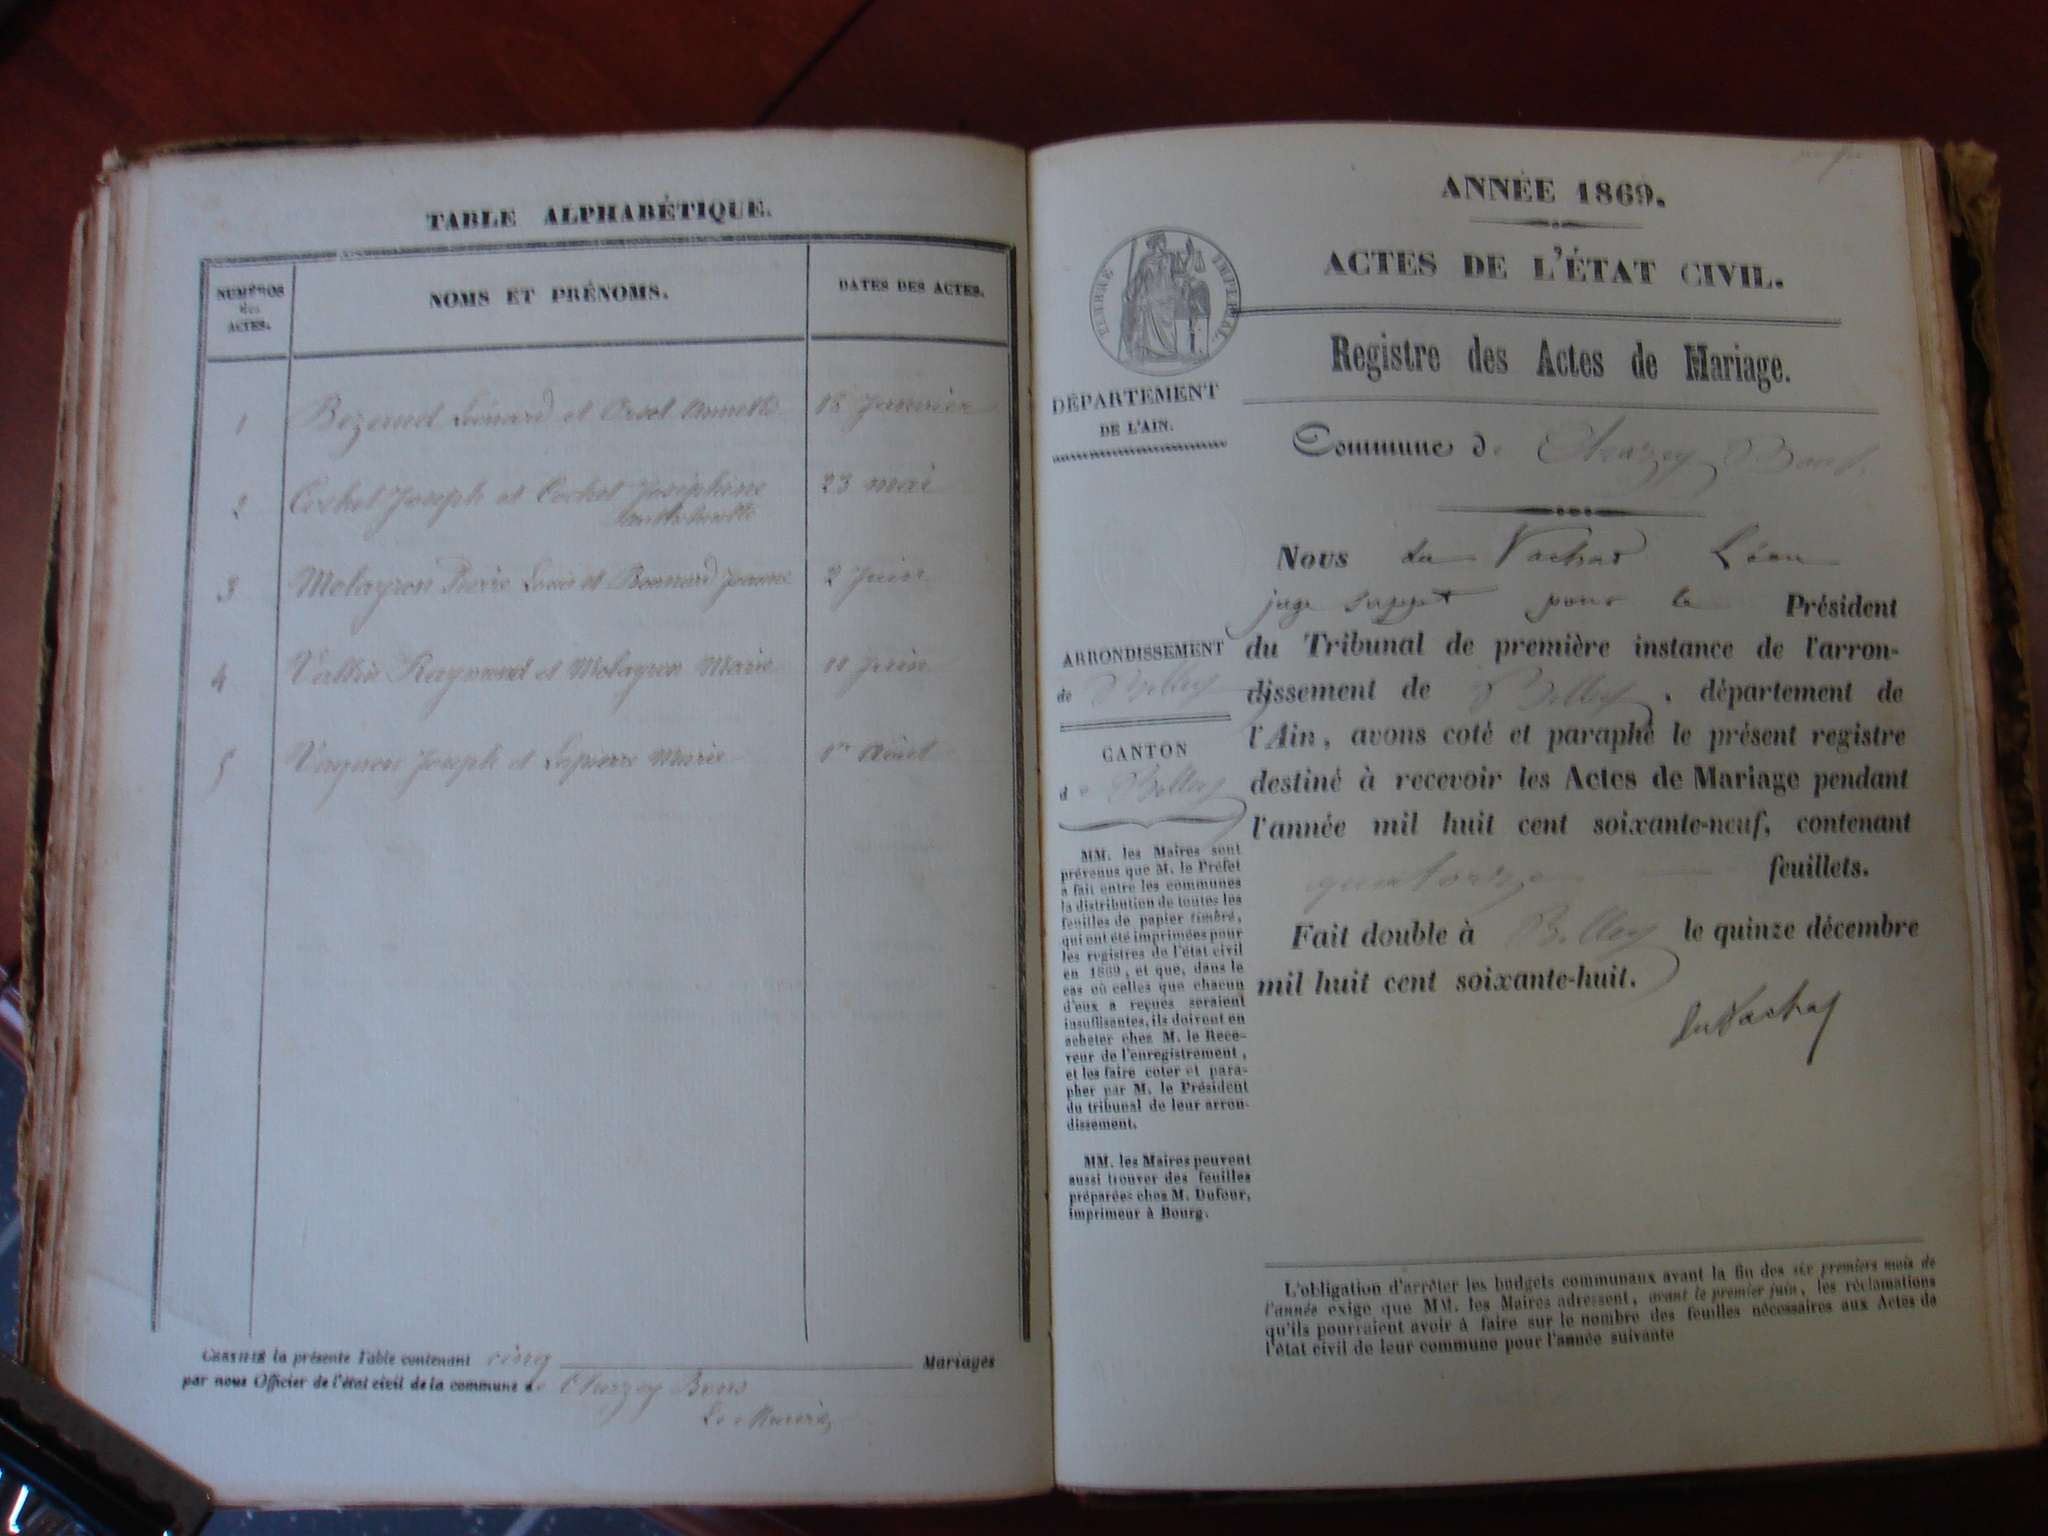 TABLE ALPHABÉTIQUE.
NUMÉROS
des
ACTES.
NOMS ET PRÉNOMS.
DATES DES ACTES.
1 Bezemet Léonard et Orset Annette 18 Janvier
2 Cochet Joseph et Cochet Joséphine 23 mai
3 Molayron Pierre Louis et Bonnard Jeanne 2 Juin
4 Raymond et Molayron Marie 11 Juin
5 Vingnon Joseph et Lapierre Marie 1er Août
CERTIFIÉ la présente Table contenant cinq Mariages
par nous Officier de l'état civil de la commune de Charzey Bons
Le Maire
ANNÉE 1869.
ACTES DE L'ÉTAT CIVIL.
TIMBRE IMPÉRIAL.
DÉPARTEMENT
DE L'AIN.
Registre des Actes de Mariage.
Commune de Chazey Bons
ARRONDISSEMENT
de Belley
CANTON
de Belley
Nous du Vachat Léon
juge suppt pour le Président
du Tribunal de première instance de l'arron-
dissement de Belley, département de
l'Ain, avons coté et paraphé le présent registre
destiné à recevoir les Actes de Mariage pendant
l'année mil huit cent soixante-neuf, contenant
quatorze feuillets.
Fait double à Belley le quinze décembre
mil huit cent soixante-huit.
du Vachat
MM. les Maires sont
prévenus que M. le Préfet
a fait entre les communes
la distribution de toutes les
feuilles de papier timbré,
qui ont été imprimées pour
les registres de l'état civil
en 1869, et que, dans le
cas où celles que chacun
d'eux a reçues seraient
insuffisantes, ils doivent en
acheter chez M. le Rece-
veur de l'enregistrement,
et les faire coter et para-
pher par M. le Président
du tribunal de leur arron-
dissement.
MM. les Maires peuvent
aussi trouver des feuilles
préparées chez M. Dufour,
imprimeur à Bourg.
L'obligation d'arrêter les budgets communaux avant la fin des six premiers mois de
l'année exige que MM. les Maires adressent, avant le premier juin, les réclamations
qu'ils pourraient avoir à faire sur le nombre des feuilles nécessaires aux Actes de
l'état civil de leur commune pour l'année suivante